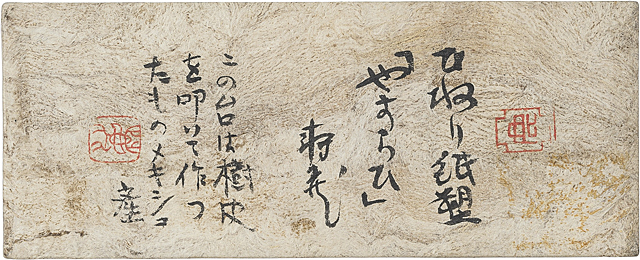 ひねり紙塑
「やすらひ」
この台は樹皮
を叩いて作つ
たものメキシコ
産